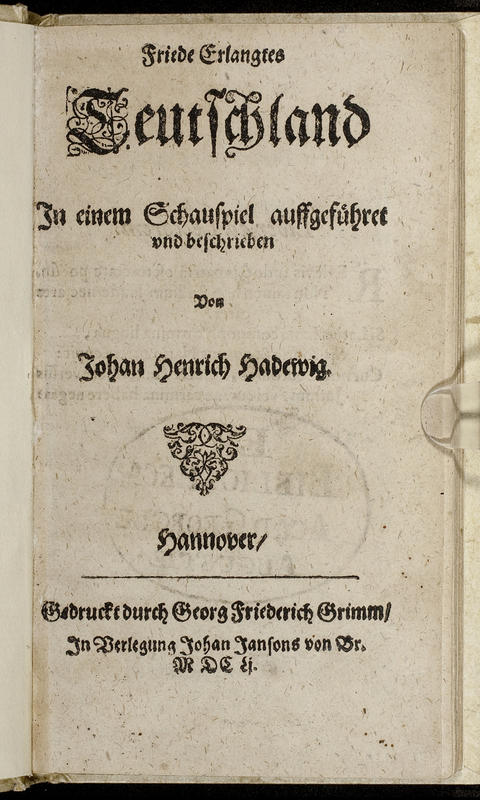 Friede Erlangtes
Teutschland
In einem Schauspiel auffgeführet
vnd beschrieben
Von
Johan Henrich Hadewig.
Hannover/
Gedruckt durch Georg Friederich Grimm/
In Verlegung Johan Jansons von Br.
M DC Lj.